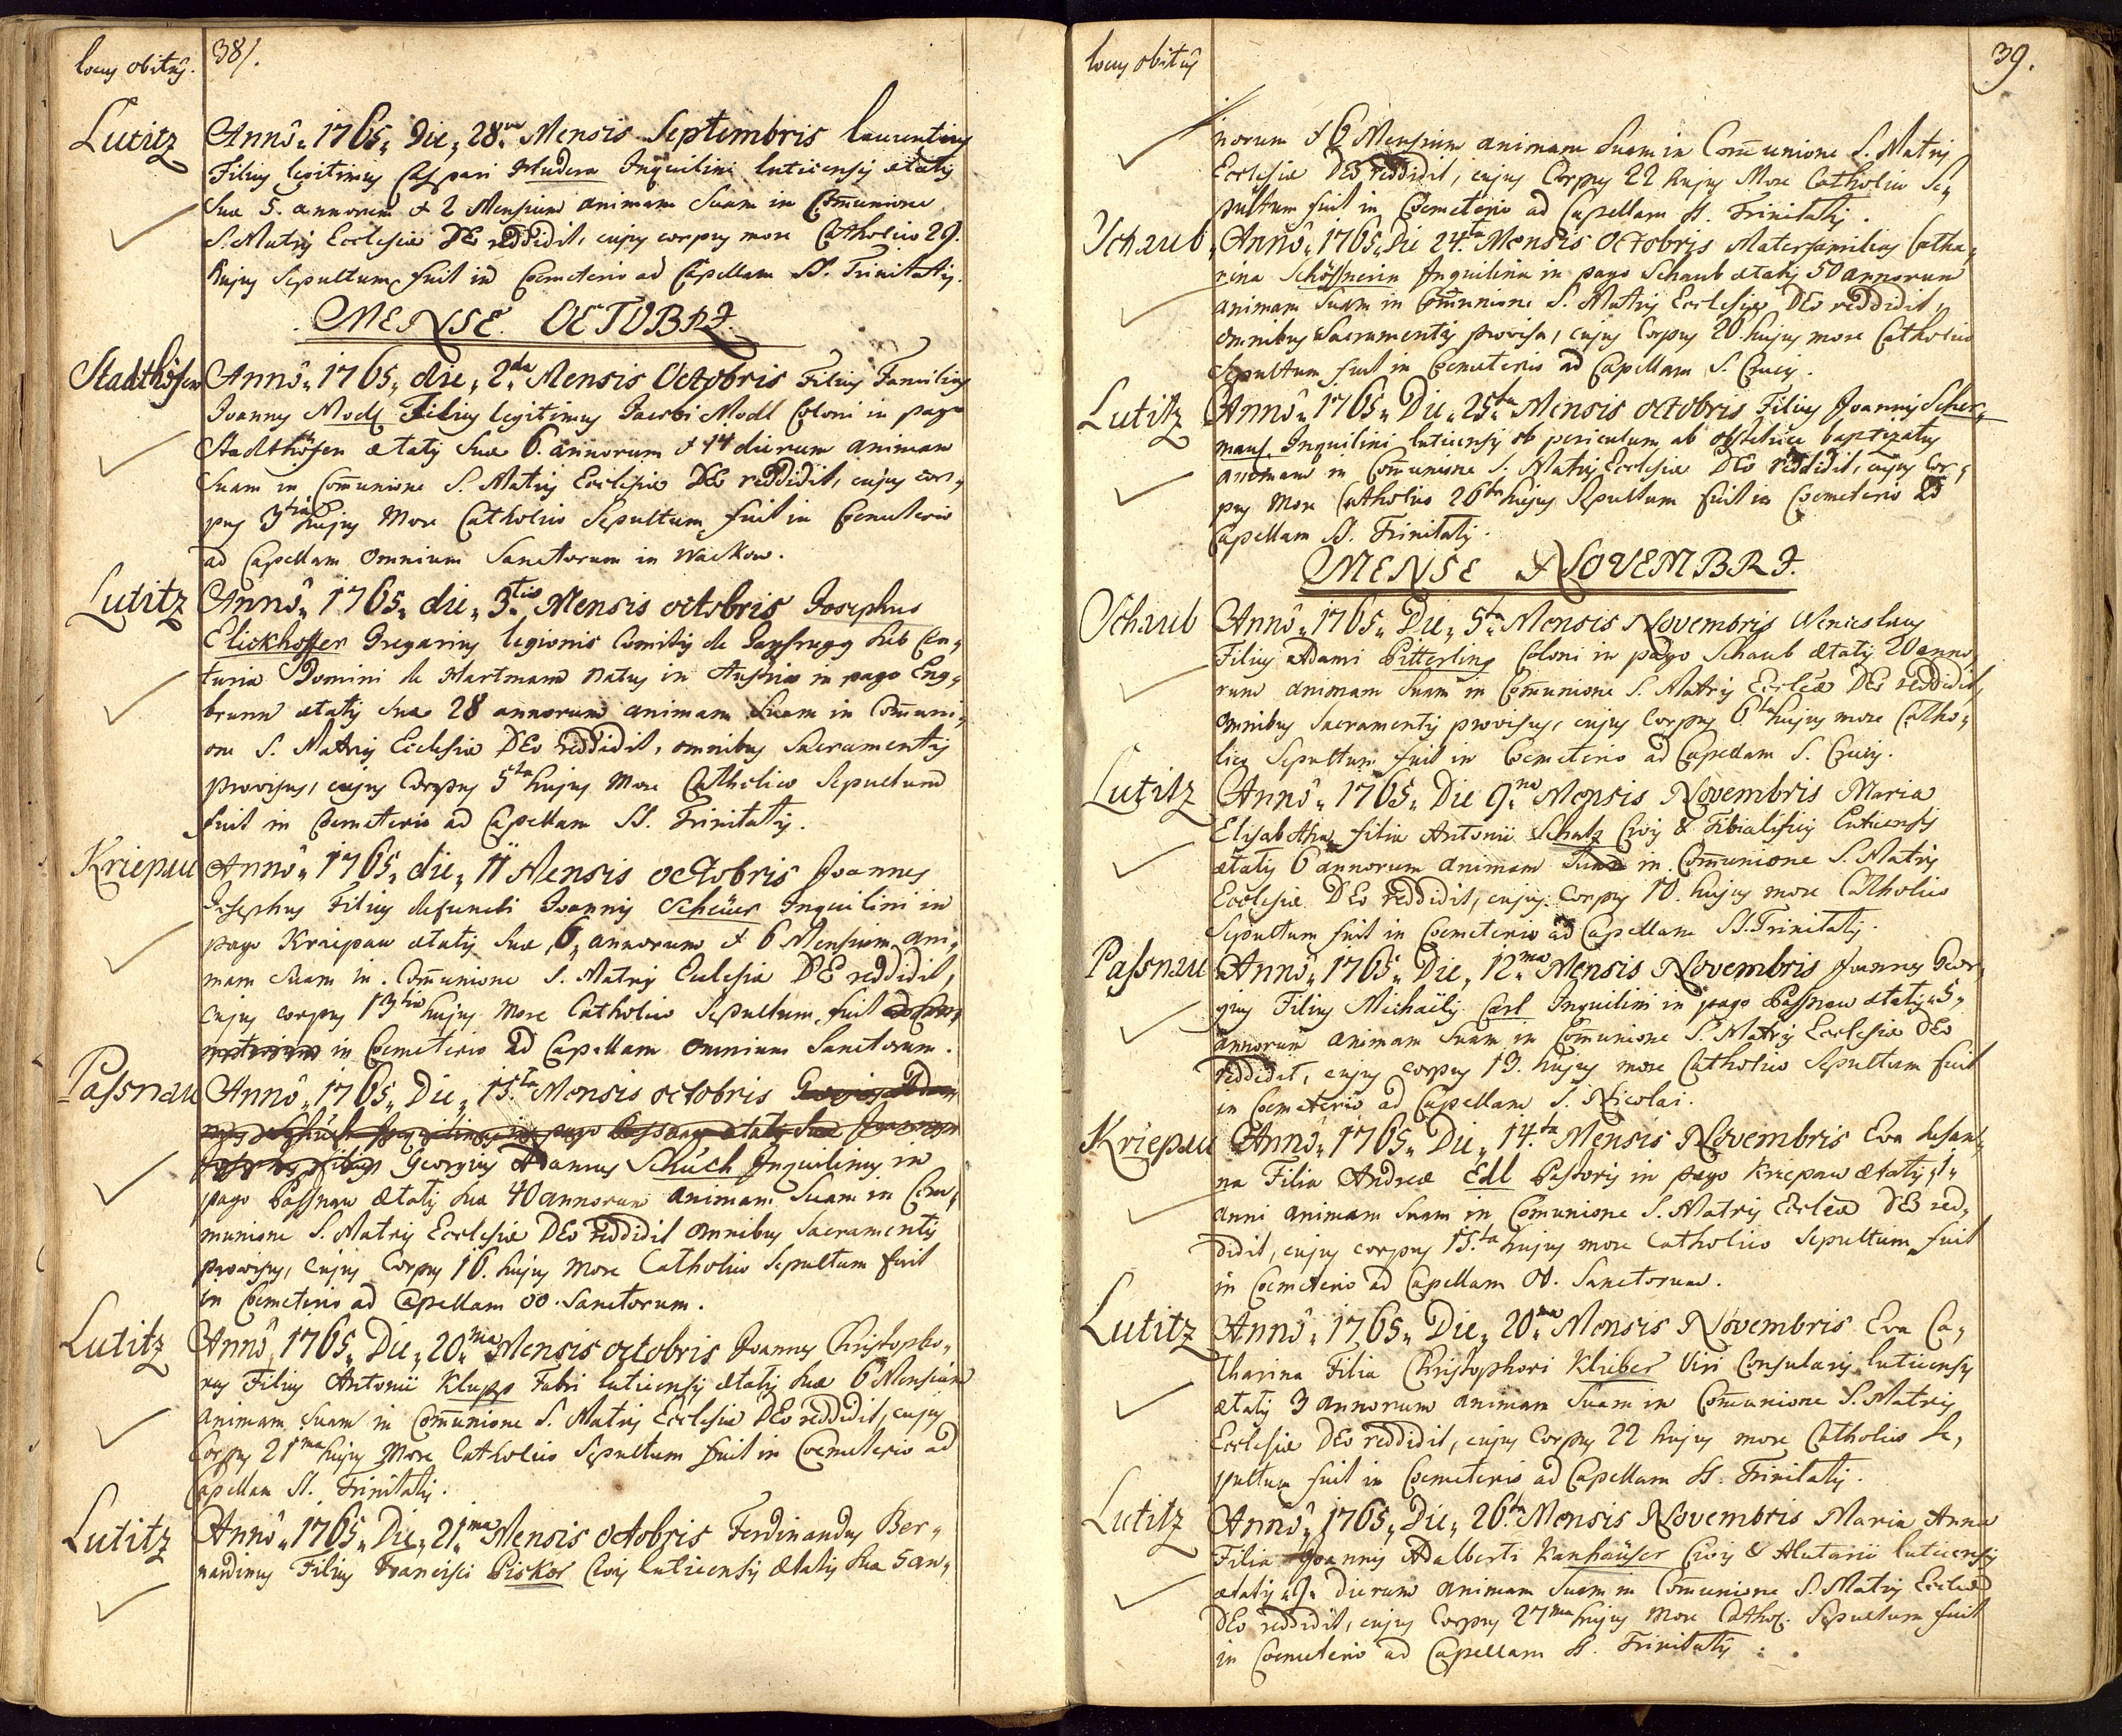 locus obitûs. 38/.
Lutitz Annô „ 1765 „ Die „ 28va Mensis Septembris laurentius
Filius legitimus Caspari Hudera Inquilini luticensis ætatis
suæ 5. annorum & 2 Mensium animam suam in Com̄unione
S. Matris Ecclesiæ DEo reddidit, cujus corpus more Catholico 29.
hujus Sepultum fuit in Coemeterio ad Capellam SS. Trinitatis.
MENSE OCTOBRI.
Stadthöfen Annô „ 1765 „ die „ 2da Mensis Octobris Filius Familias
Joannes Modl Filius legitimus Jacobi Modl Coloni in pago
Stadthöfen ætatis suæ 6. annorum & 14 dierum animam
suam in Com̄unione S. Matris Ecclesiæ DEo reddidit, cujus cor„
pus 3tia hujus More Catholico Sepultum fuit in Coemeterio
ad Capellam Omnium Sanctorum in Wackow.
Lutitz Annô „ 1765 „ die „ 3tia Mensis octobris Josephus
Elickhoffer Gregarius legionis Comitis de Gaysrugg sub Cen„
turia Domini de Hartmann natus in Austria in pago Eng„
brunn ætatis suæ 28 annorum animam suam in Com̄uni„
one S. Matris Ecclesiæ DEo reddidit, omnibus Sacramentis
provisus, cujus Corpus 5ta hujus More Catholico Sepultum
fuit in Coemeterio ad Capellam SS. Trinitatis.
Kriepau Annô „ 1765 „ die „ 11 Mensis octobris Joannes
Josephus Filius defuncti Joannis Scheüer Inquilini in
pago Kriepau ætatis suæ „6„ annorum & 6 Mensium ani„
mam suam in Com̄unione S. Matris Ecclesiæ DEo reddidit,
cujus corpus 13tia hujus More Catholico Sepultum fuit
in Coemeterio ad Capellam Omnium Sanctorum.
Passnau Annô „ 1765 „ Die „ 15ta Mensis octobris
Georgius Adamus Schüch Inquilinus in
pago Passnau ætatis suæ 40 annorum animam suam in Com„
munione S. Matris Ecclesiæ DEo reddidit omnibus Sacramentis
provisus, cujus Corpus 16. hujus More Catholico Sepultum fuit
in Coemeterio ad Capellam OO. Sanctorum.
Lutitz Annô „ 1765 „ Die „ 20ma Mensis octobris Joannes Christopho„
rus Filius Antonii Klupp Fabri luticensis ætatis suæ 6 Mensium
animam suam in Com̄unione S. Matris Ecclesiæ DEo reddidit, cujus
Corpus 21ma hujus More Catholico Sepultum fuit in Coemeterio ad
Capellam SS. Trinitatis.
Lutitz Annô „ 1765 „ Die „ 21ma Mensis octobris Ferdinandus Ber„
nardinus Filius Francisci Piskor Civis luticensis ætatis suæ 5 an„
locus obitûs 39.
norum & 6 Mensium animam suam in Com̄unione S. Matris
Ecclesiæ DEo reddidit, cujus Corpus 22 hujus More Catholico Se„
pultum fuit in Coemeterio ad Capellam SS. Trinitatis.
Schaub Annô „ 1765 „ Die 24ta Mensis Octobris Materfamilias Catha„
rina Schöffnerin Inquilina in pago Schaub ætatis 50 annorum
animam suam in Com̄unione S. Matris Ecclesiæ DEo reddidit,
omnibus Sacramentis provisa, cujus Corpus 26 hujus more Catholico
Sepultum fuit in Coemeterio ad Capellam S. Crucis.
Lutitz Annô „ 1765 „ Die „ 25ta Mensis octobris Filius Joannis Scher„
maus Inquilini luticensis ob periculum ab obstetrice baptizatus
animam in Com̄unione S. Matris Ecclesiæ DEo reddidit, cujus Cor„
pus More Catholico 26ta hujus Sepultum fuit in Coemeterio ad
Capellam SS. Trinitatis.
MENSE NOVEMBRI.
Schaub Annô „ 1765 „ Die „ 5ta Mensis Novembris Wenceslaus
Filius Adami Pitterling Coloni in pago Schaub ætatis 20 anno„
rum animam suam in Com̄unione S. Matris Eccleæ DEo reddidit,
omnibus Sacramentis provisus, cujus Corpus 6ta hujus more Catho„
lico Sepultum fuit in Coemeterio ad Capellam S. Crucis.
Lutitz Annô „ 1765 „ Die 9na Mensis Novembris Maria
Elisabetha filia Antonii Schatz Civis & Tibialificis Luticensis
ætatis 6 annorum animam suam in Com̄unione S. Matris
Ecclesiæ DEo reddidit, cujus Corpus 10. hujus more Catholico
Sepultum fuit in Coemeterio ad Capellam SS. Trinitatis.
Passnau Annô „ 1765 „ Die „ 12ma Mensis Novembris Joannes Geor„
gius Filius Michaëlis Carl Inquilini in pago Passnau ætatis „5„
annorum animam suam in Com̄unione S. Matris Ecclesiæ DEo
reddidit, cujus corpus 13. hujus more Catholico Sepultum fuit
in Coemeterio ad Capellam S. Nicolai.
Kriepau Annô „ 1765 „ Die „ 14ta Mensis Novembris Eva Susan„
na Filia Andreæ Edl Pastoris in pago Kriepau ætatis „1„
anni animam suam in Com̄unione S. Matris Eccleæ DEo red„
didit, cujus corpus 15ta hujus more Catholico Sepultum fuit
in Coemeterio ad Capellam OO. Sanctorum.
Lutitz Annô „ 1765 „ Die „ 20ma Mensis Novembris Eva Ca„
tharina Filia Christophori Klieber Viri Consularis luticensis
ætatis 3 annorum animam suam in Com̄unione S. Matris
Ecclesiæ DEo reddidit, cujus Corpus 22 hujus more Catholico Se„
pultum fuit in Coemeterio ad Capellam SS. Trinitatis.
Lutitz Annô „ 1765 „ Die „ 26ta Mensis Novembris Maria Anna
Filia Joannis Adalberti Kanhäuser Civis & Alutarii luticensis
ætatis „9„ dierum animam suam in Com̄unione S. Matris Eccleæ
DEo reddidit, cujus Corpus 27ma hujus More Cathol. Sepultum fuit
in Coemeterio ad Capellam SS. Trinitatis.